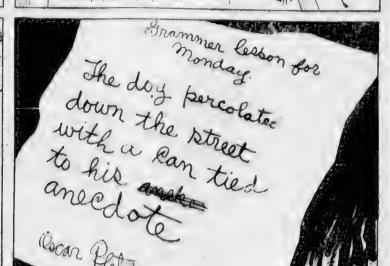 Grammer lesson for
Monday.
The dog percolated
down the street
with a can tied
to his
anecdote
Oscar